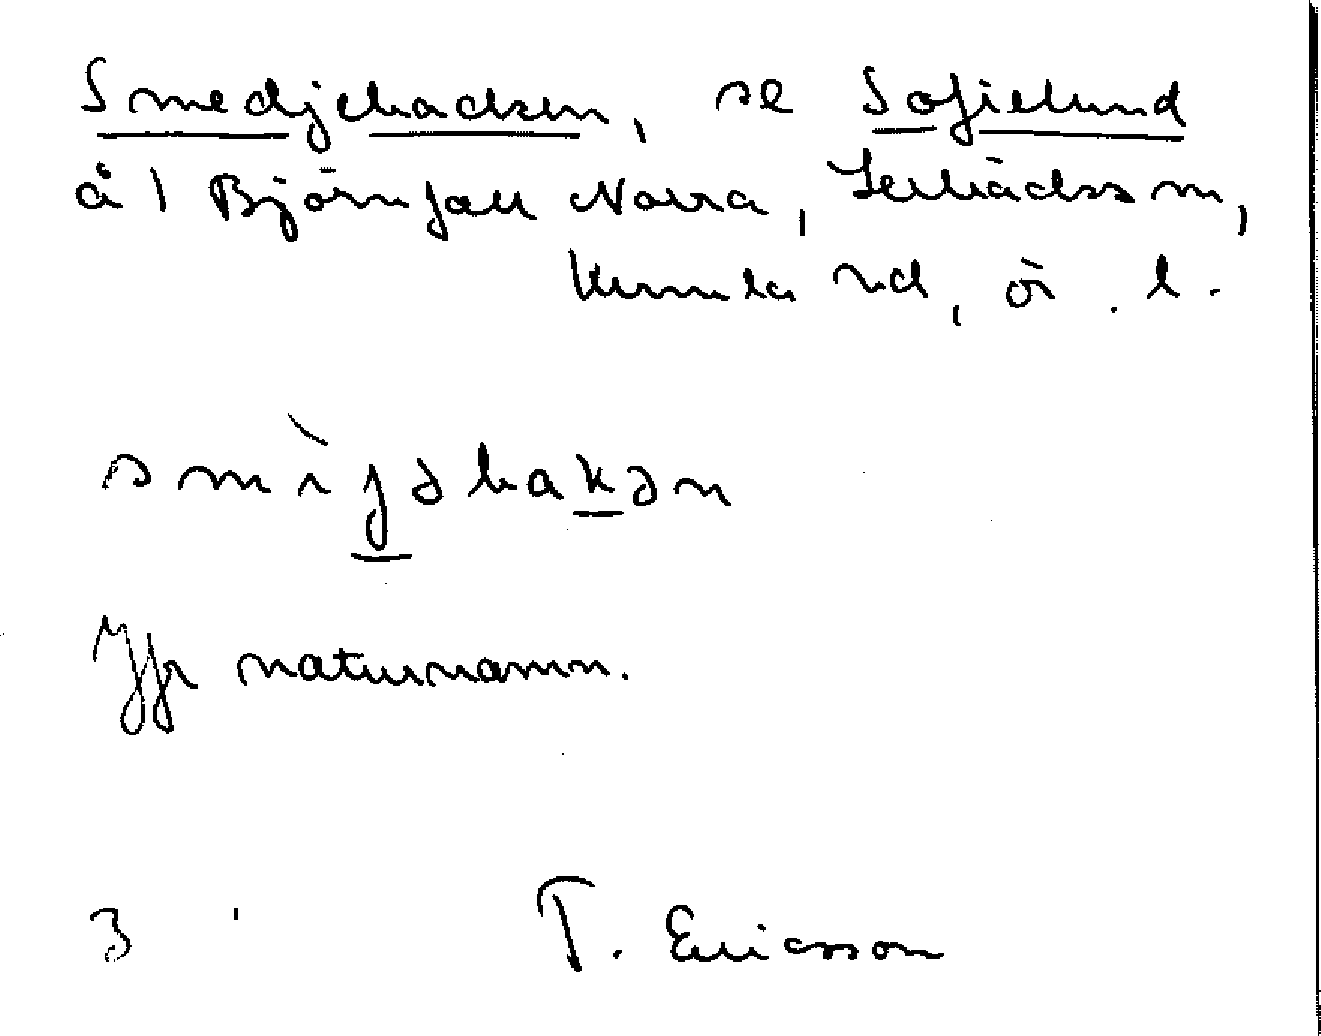 Smedjebacken, se Sofielund
å 1 Björnfall Norra, Lerbäcks sn,
Kumla hd, ör. l.
smìjəbakən
Jfr naturnamn.
3 T. Ericsson